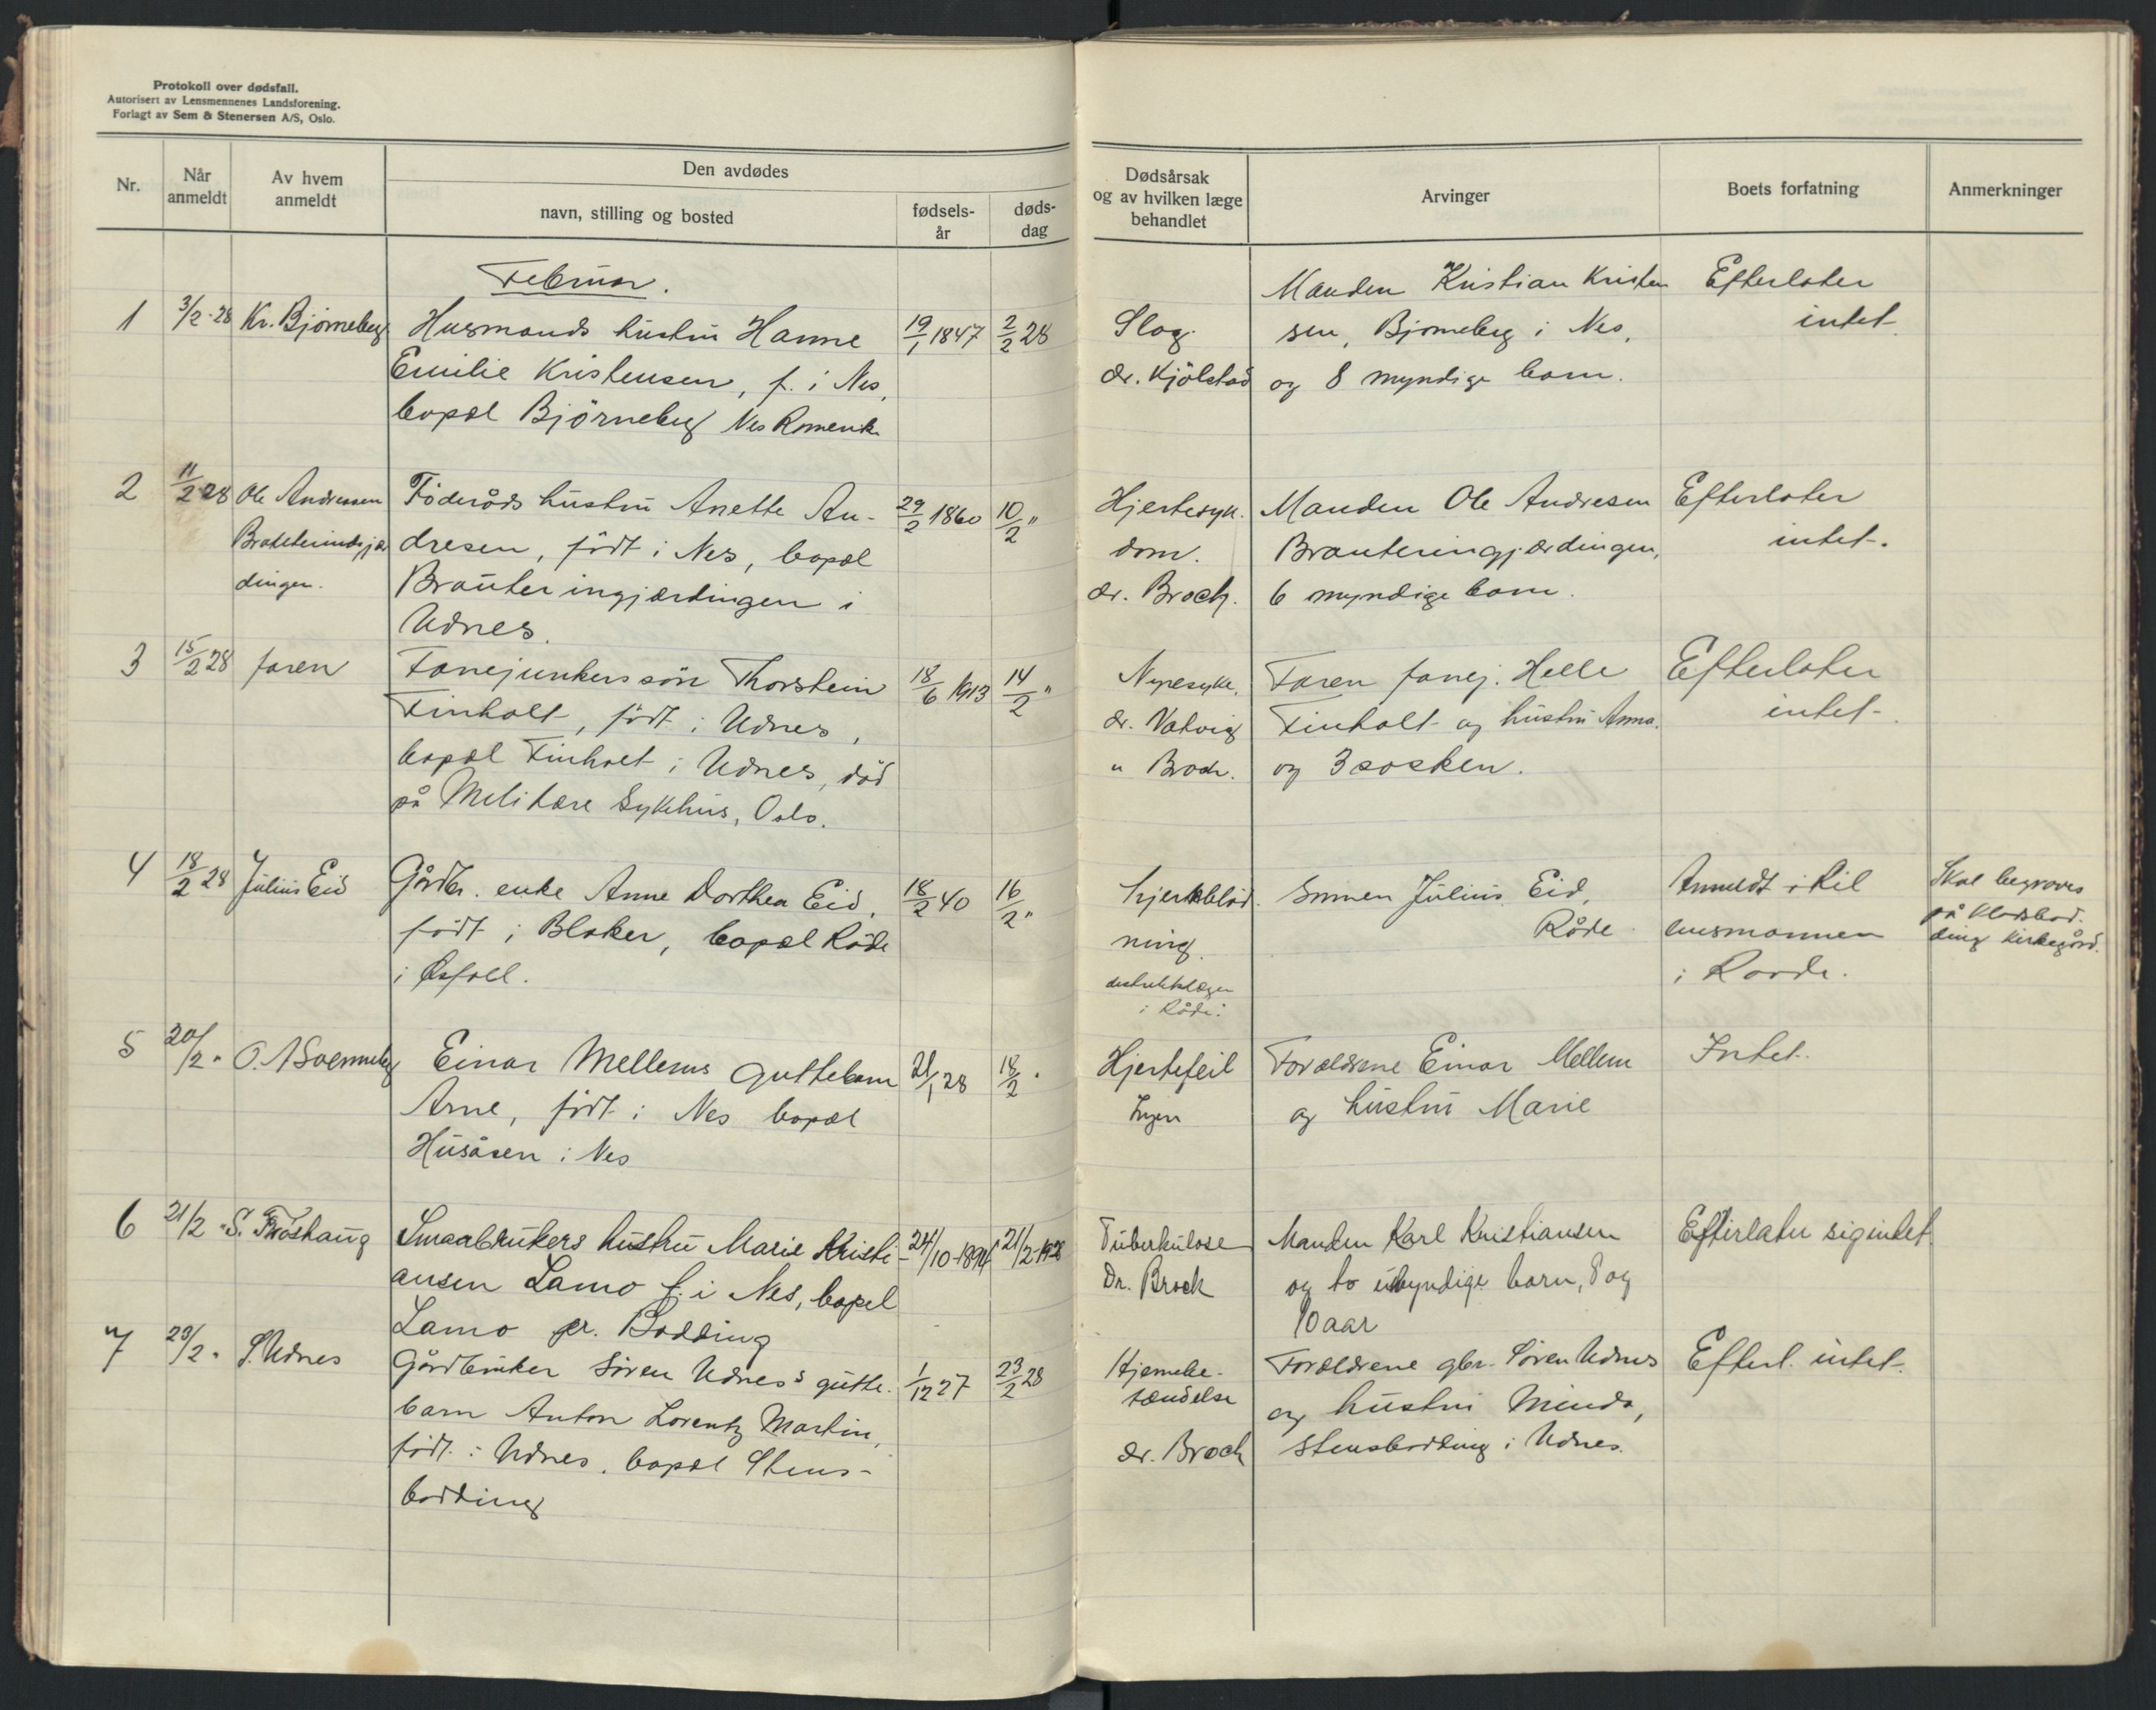 Protokoll over dødsfall.
Autorisert av Lensmennenes Landsforening.
Forlagt av Sem & Stenersen A/S, Oslo.
Nr.
Når
anmeldt
Av hvem
anmeldt
Den avdødes
navn, stilling og bosted
fødsels-
år
døds-
dag
Dødsårsak
og av hvilken læge
behandlet
Arvinger
Boets forfatning
Anmerkninger
Februar.
1 3/2-28 Kr. Bjørneberg Husmands hustru Hanne 19/1 1847 2/2 28
Emilie Kristensen, f. i Nes,
bopæl Björneberg Nes Romerik
Slag.
dr. Kjölstad
Manden Kristian Kristen
sen, Bjørneberg i Nes,
og 8 myndige barn.
Efterlater
intet.
2 11/2 28 Ole Andresen Föderåds hustru Anette An- 29/2 1860 10/2 "
dresen, födt i Nes, bopæl
dingen. Brauteringjærdingen i
Udnes.
Hjertesyk.
dom.
dr. Broch.
Manden Ole Andresen
Brauteringjærdingen,
6 myndige barn.
Efterlater
intet.
3 15/2 28 faren Fanejunkers sön Thorstein 18/6 1913 14/2 "
Finholt, födt i Udnes,
bopæl Finholt i Udnes, död
på Militære Sykehus, Oslo.
Nyresyke.
dr. Vatvig
" Broch.
Faren fanej. Helle
Finholt og hustru Anna.
og 3 sösken.
Efterlater
intet.
4 18/2 28 Julius Eid Gårdbr. enke Anne Dorthea Eid, 18/2 40 16/2 "
födt i Blaker, bopæl Råde
i Østfoll.
hjerneblöd.
ning.
distriktslægen
i Råde.
Sønnen Julius Eid,
Råde.
Anmeldt i til
lensmannen
i Raade.
Skal begraves
på
ding kirkegård.
5 20/2 " O. A Svenneby Einar Mellems guttebarn 21/1 28 18/2 "
Arne, födt i Nes bopæl
Husåsen i Nes
Hjertefeil
Ingen
Forældrene Einar Mellem
og hustru Marie
Intet.
6 21/2 " S. Frøshaug Smaabrukers hustru Marie Kristi- 24/10-1894 21/2-1928
ansen Lamo f. i Nes, bopel
Lamo pr. Bodding
Tuberkulose
Dr. Brock
Manden Karl Kristiansen
og to umyndige barn, 8 og
10 aar
Efterlater sig intet
7 23/2 " S. Udnes Gårdbruker Sören Udnes's gutte- 1/12 27 23/2 28
barn Anton Lorentz Martin,
födt i Udnes, bopæl Stens-
bodding
Hjernebe-
tændelse
dr. Broch
Forældrene gbr. Sören Udnes
og hustru Minda,
Stensbodding i Udnes.
Efterl. intet.